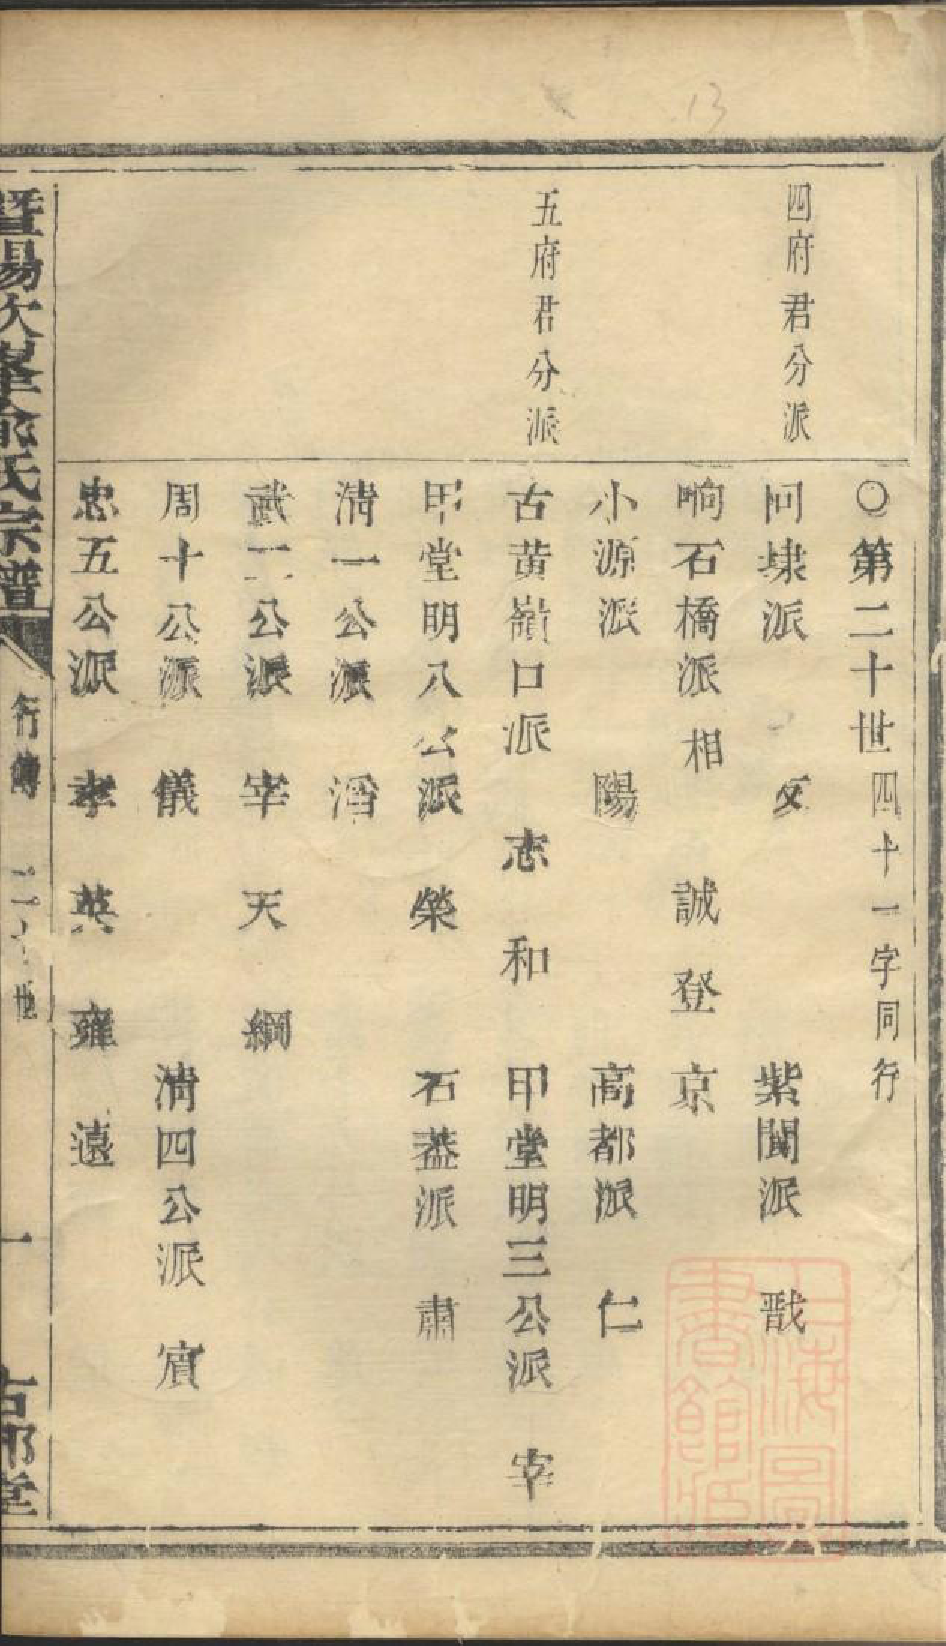 13
四府君分派
〇第二十世四十一字同行
同埭派 文 紫閬派 戩
响石橋派相 誠登京
小源派 陽 高都派 仁
五府君分派
古黄嶺口派 志和 甲堂明三公派 宰
甲堂明八公派 榮 石蓋派 肅
清一公派 潘
武二公派 宰天綱
周十公派 儀 清四公派 賔
忠五公派 孝英雍遠
暨陽次峯俞氏宗譜 行傳 二十世 一 古那堂
上海圖書館